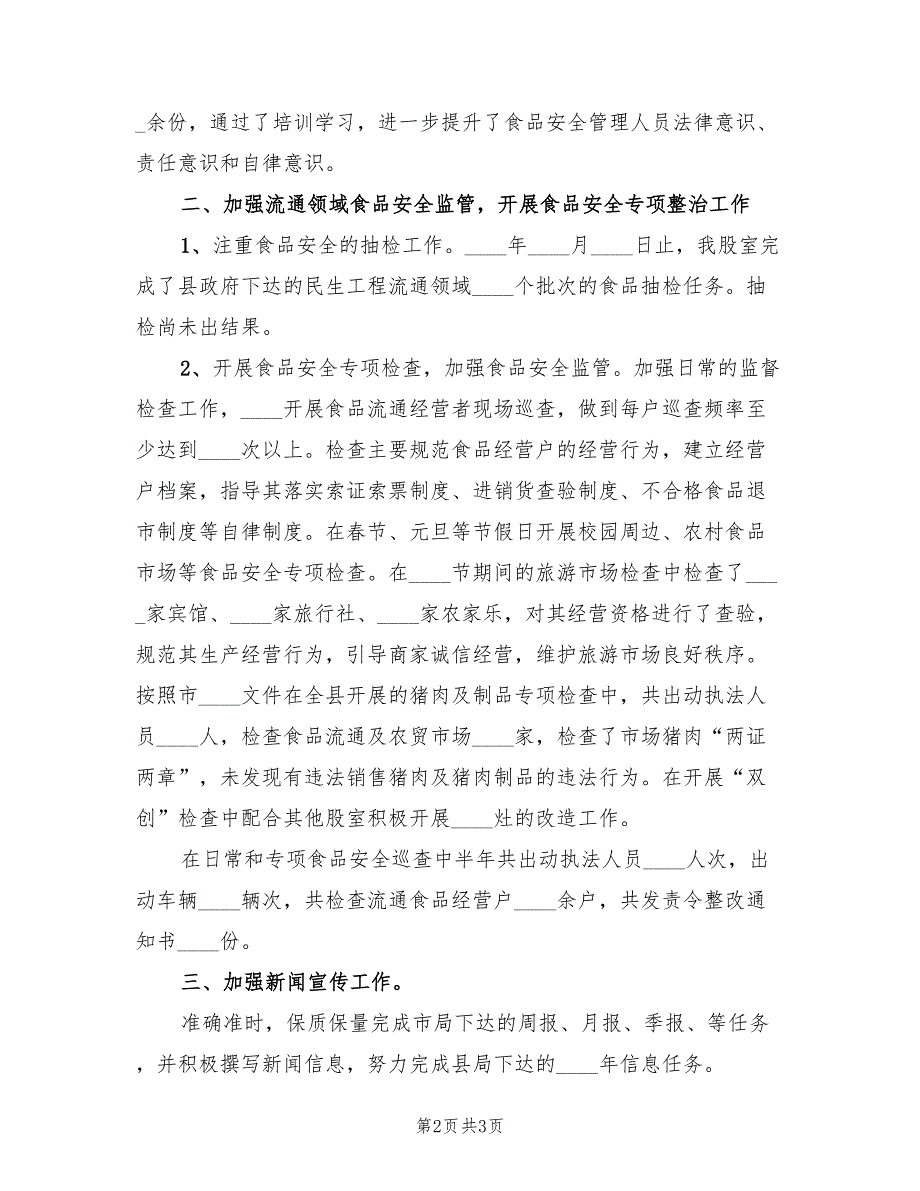 _余份，通过了培训学习，进一步提升了食品安全管理人员法律意识、
责任意识和自律意识。
二、加强流通领域食品安全监管，开展食品安全专项整治工作
1、注重食品安全的抽检工作。____年____月____日止，我股室完
成了县政府下达的民生工程流通领域____个批次的食品抽检任务。抽
检尚未出结果。
2、开展食品安全专项检查，加强食品安全监管。加强日常的监督
检查工作，____开展食品流通经营者现场巡查，做到每户巡查频率至
少达到____次以上。检查主要规范食品经营户的经营行为，建立经营
户档案，指导其落实索证索票制度、进销货查验制度、不合格食品退
市制度等自律制度。在春节、元旦等节假日开展校园周边、农村食品
市场等食品安全专项检查。在____节期间的旅游市场检查中检查了___
_家宾馆、____家旅行社、____家农家乐，对其经营资格进行了查验，
规范其生产经营行为，引导商家诚信经营，维护旅游市场良好秩序。
按照市____文件在全县开展的猪肉及制品专项检查中，共出动执法人
员____人，检查食品流通及农贸市场____家，检查了市场猪肉“两证
两章”，未发现有违法销售猪肉及猪肉制品的违法行为。在开展“双
创”检查中配合其他股室积极开展____灶的改造工作。
在日常和专项食品安全巡查中半年共出动执法人员____人次，出
动车辆____辆次，共检查流通食品经营户____余户，共发责令整改通
知书____份。
三、加强新闻宣传工作。
准确准时，保质保量完成市局下达的周报、月报、季报、等任务
，并积极撰写新闻信息，努力完成县局下达的____年信息任务。
第2页共3页